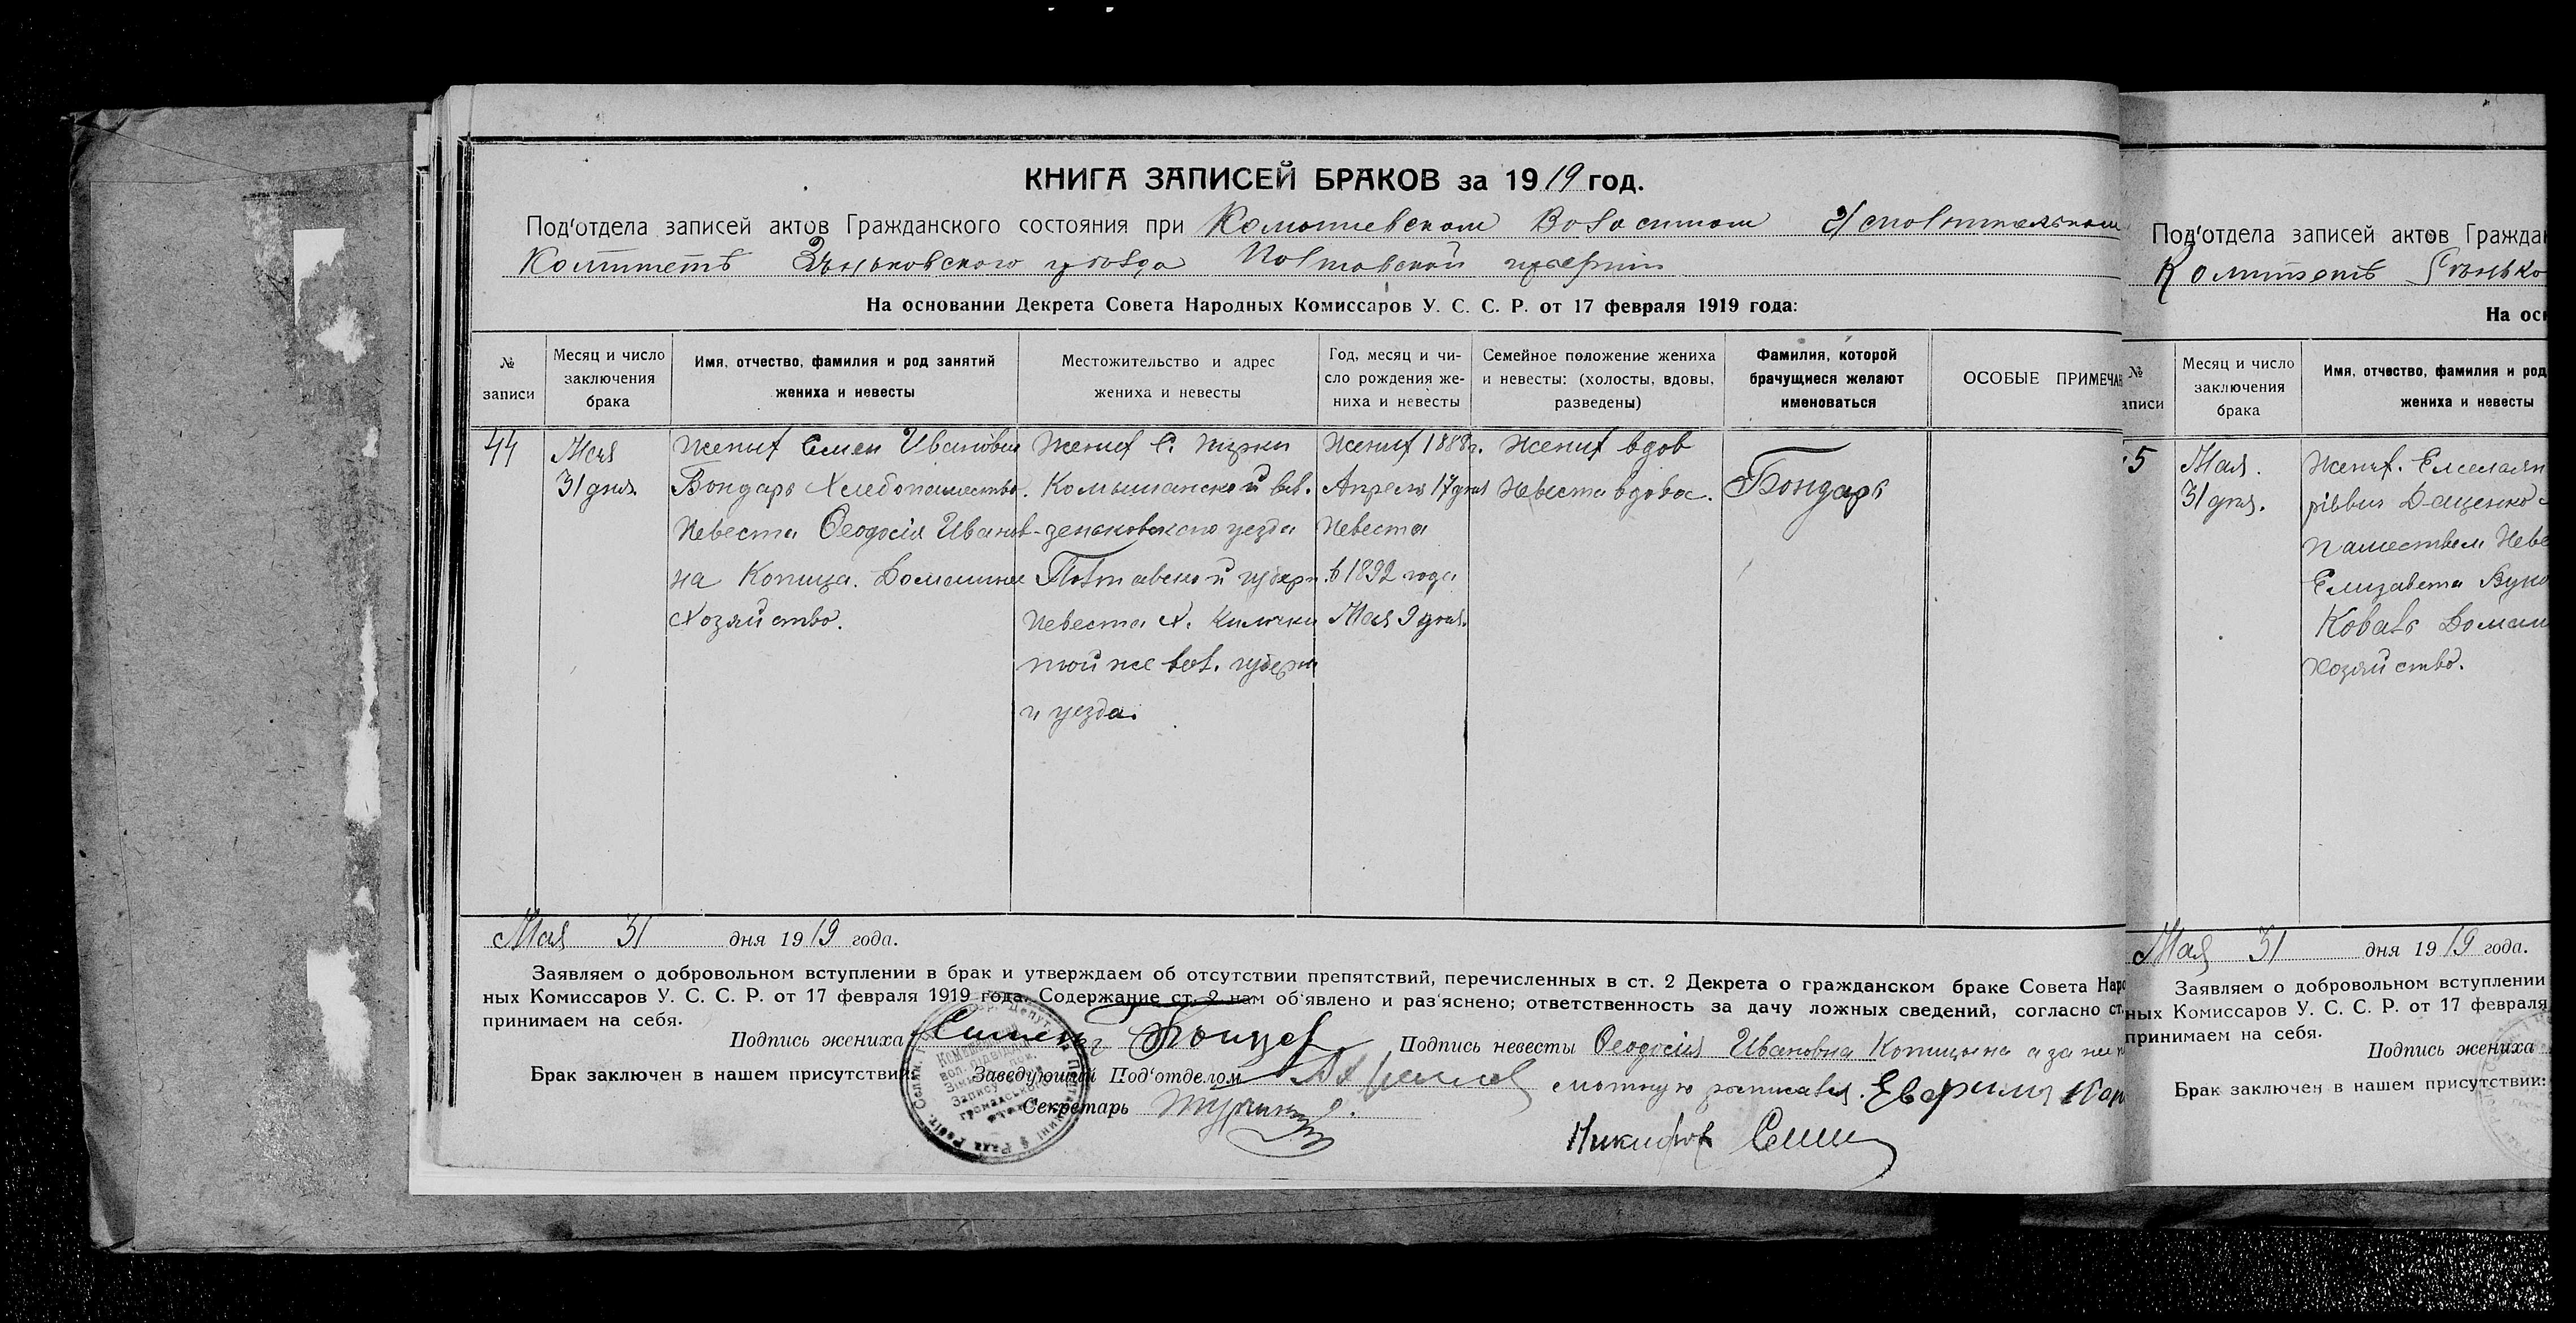 КНИГА ЗАПИСЕЙ БРАКОВ за 1919 год.
Под'отдела записей актов Гражданского состояния при Комышевском Волостном
Комитетъ Зѣньковского уѣзда Полтавской губернии
На основании Декрета Совета Народных Комиссаров У. С. С. Р. от 17 февраля 1919 года:
№ записи
Месяц и число заключения брака
Имя, отчество, фамилия и род занятий жениха и невесты
Местожительство и адрес жениха и невесты
Год, месяц и число рождения жениха и невесты
Семейное положение жениха и невесты: (холосты, вдовы, разведены)
Фамилия, которой брачущиеся желают именоваться
ОСОБЫЕ ПРИМЕЧАН
44
Мая
31 дня.
Жених Семен Иванович
Бондарь Хлебопашество.
Невеста Феодосия Иванов-
на Копица. Домашнее
Хозяйство.
Жених С.
Комышанской вол.
зеньковского уезда
Полтавской губерн.
Невеста Х.
той же вол. губерн
и уезда.
Жених 1888г.
Апреля 17 дня
Невеста
в 1892 года
Мая 9 дня.
Жених вдов
Невеста вдова.
Бондарь
Мая 31 дня 1919 года.
Заявляем о добровольном вступлении в брак и утверждаем об отсутствии препятствий, перечисленных в ст. 2 Декрета о гражданском браке Совета Наро
ных Комиссаров У. С. С. Р. от 17 февраля 1919 года. Содержание ст. 2 нам об'явлено и раз'яснено; ответственность за дачу ложных сведений, согласно ст.
принимаем на себя.
Подпись жениха
Подпись невесты Феодосия Ивановна Копицына а за не
мотную росписался.
Брак заключен в нашем присутствии: Заведующий Под'отделом
Секретарь
Никифор
Под'отдела записей актов Гражда
Комитетъ Зѣнько
На осн
№
аписи
Месяц и число заключения брака
Имя, отчество, фамилия и род
жениха и невесты
5
Мая.
31 дня.
Жених.
Даценко
пашеством Неве
Елизавета
Коваль Домаш
хозяйство.
Мая 31 дня 1919 года.
Заявляем о добровольном вступлении
ных Комиссаров У. С. С. Р. от 17 февраля
принимаем на себя.
Подпись жениха
Брак заключен в нашем присутствии: